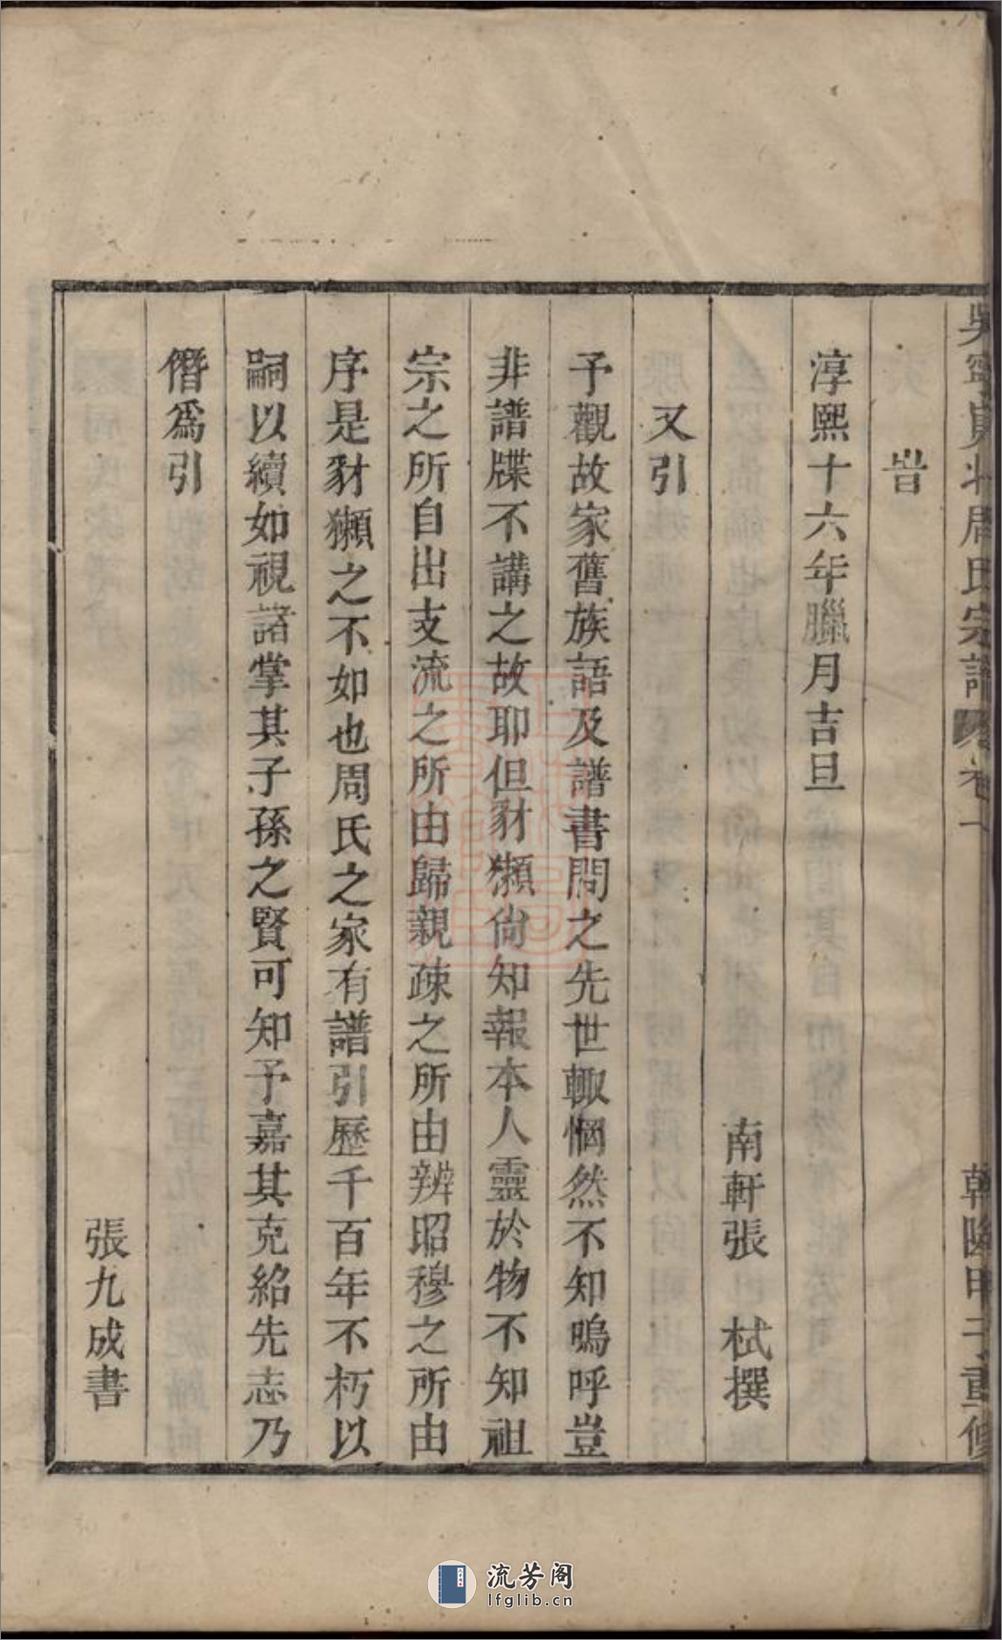 吳寧 周氏宗譜 卷一 乾隆甲子重修
旹
淳熙十六年臘月吉旦
南軒張 栻撰
又引
予觀故家舊族語及譜書問之先世輙惘然不知嗚呼豈
非譜牒不講之故耶但豺獺尙知報本人靈於物不知祖
宗之所自出支流之所由歸親疎之所由辨昭穆之所由
序是豺獺之不如也周氏之家有譜引歷千百年不朽以
嗣以續如視諸掌其子孫之賢可知予嘉其克紹先志乃
僭爲引
張九成書
流芳阁
lfglib.cn